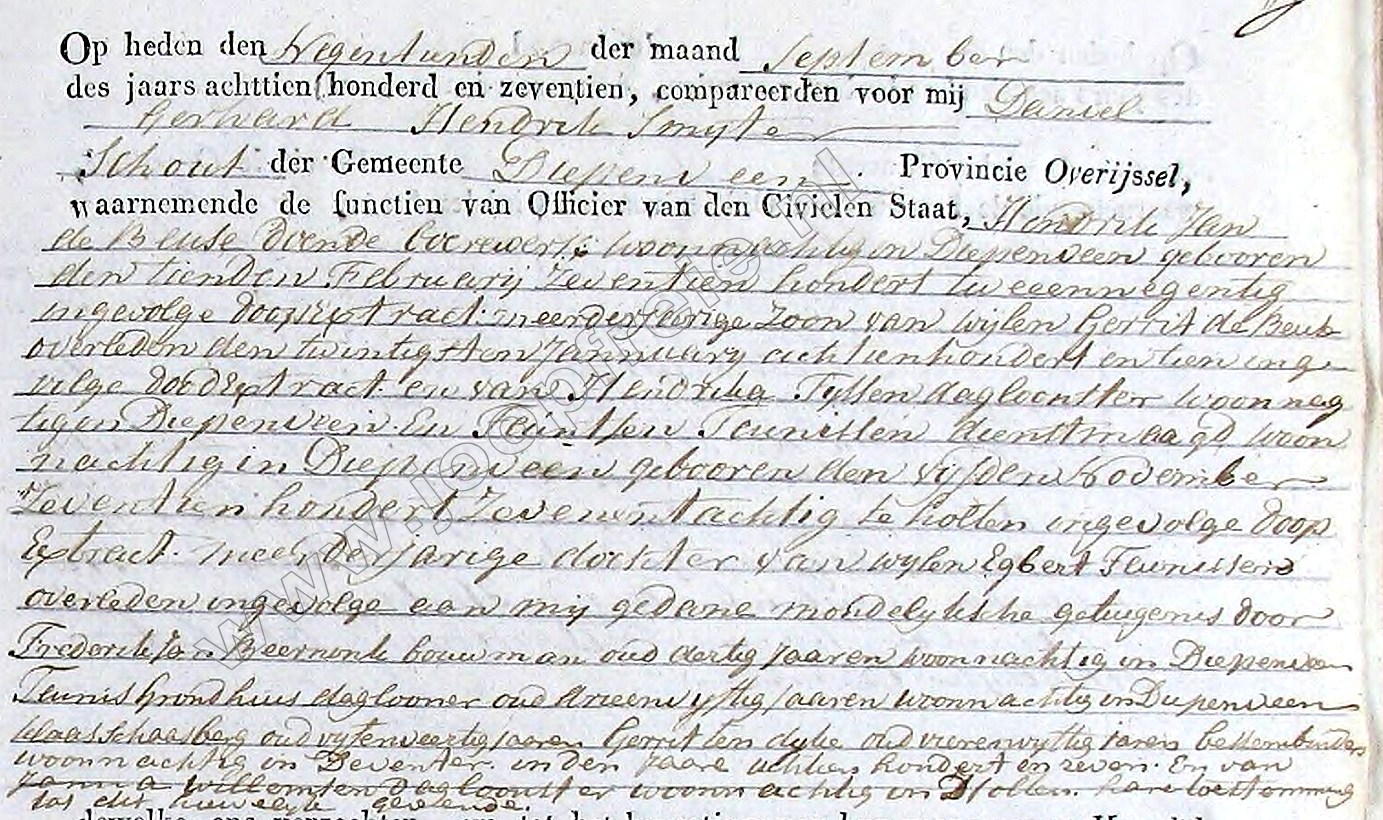 Op heden den Negentienden der maand September
des jaars achttien honderd en zeventien, compareerden voor mij Daniel
Gerhard Hendrik Smijter
Schout der Gemeente Diepenveen. Provincie Overijssel,
waarnemende de functien van Officier van den Civielen Staat, Hendrik Jan
de Beuse doende boerewerk woonnachtig in Diepenveen gebooren
den tienden Februarij Zeventien hondert tweeennegentig
ingevolge doopextract. meerderjarige Zoon van wijlen Gerrit de Beus
overleden den twintigsten Jannuary achtienhondert en tien inge
volge doodextract en van Hendrika Tyssen dagloonster woonnag
tig in Diepenveen. En Teunissen dienstmaagd woon
nachtig in Diepenveen gebooren den vijfden November
Zeventien hondert Zevenentachtig te holten ingevolge doop
Extract. meerderjarige dochter van wylen Egbert Teunissen
overleden ingevolge aan mij gedane mondelyksche getuigenis door
Frederik Jan bouwman oud dertig jaaren woonnachtig in Diepenveen
Teunis Grondhuis daglooner oud drieenvyftig jaaren woonnachtig in Diepenveen
klaas Schaasberg oud vyfenveertig jaaren Gerrit ten dyke oud vierenvyftig jaren bessembinder
woonnachtig in Deventer. in den jaare achtien hondert en zeven. En van
Janna Willemsen dagloonster woonnachtig in Hollen. hare toestemming
tot dit huwelyk gevende.
www.joopfrie.nl